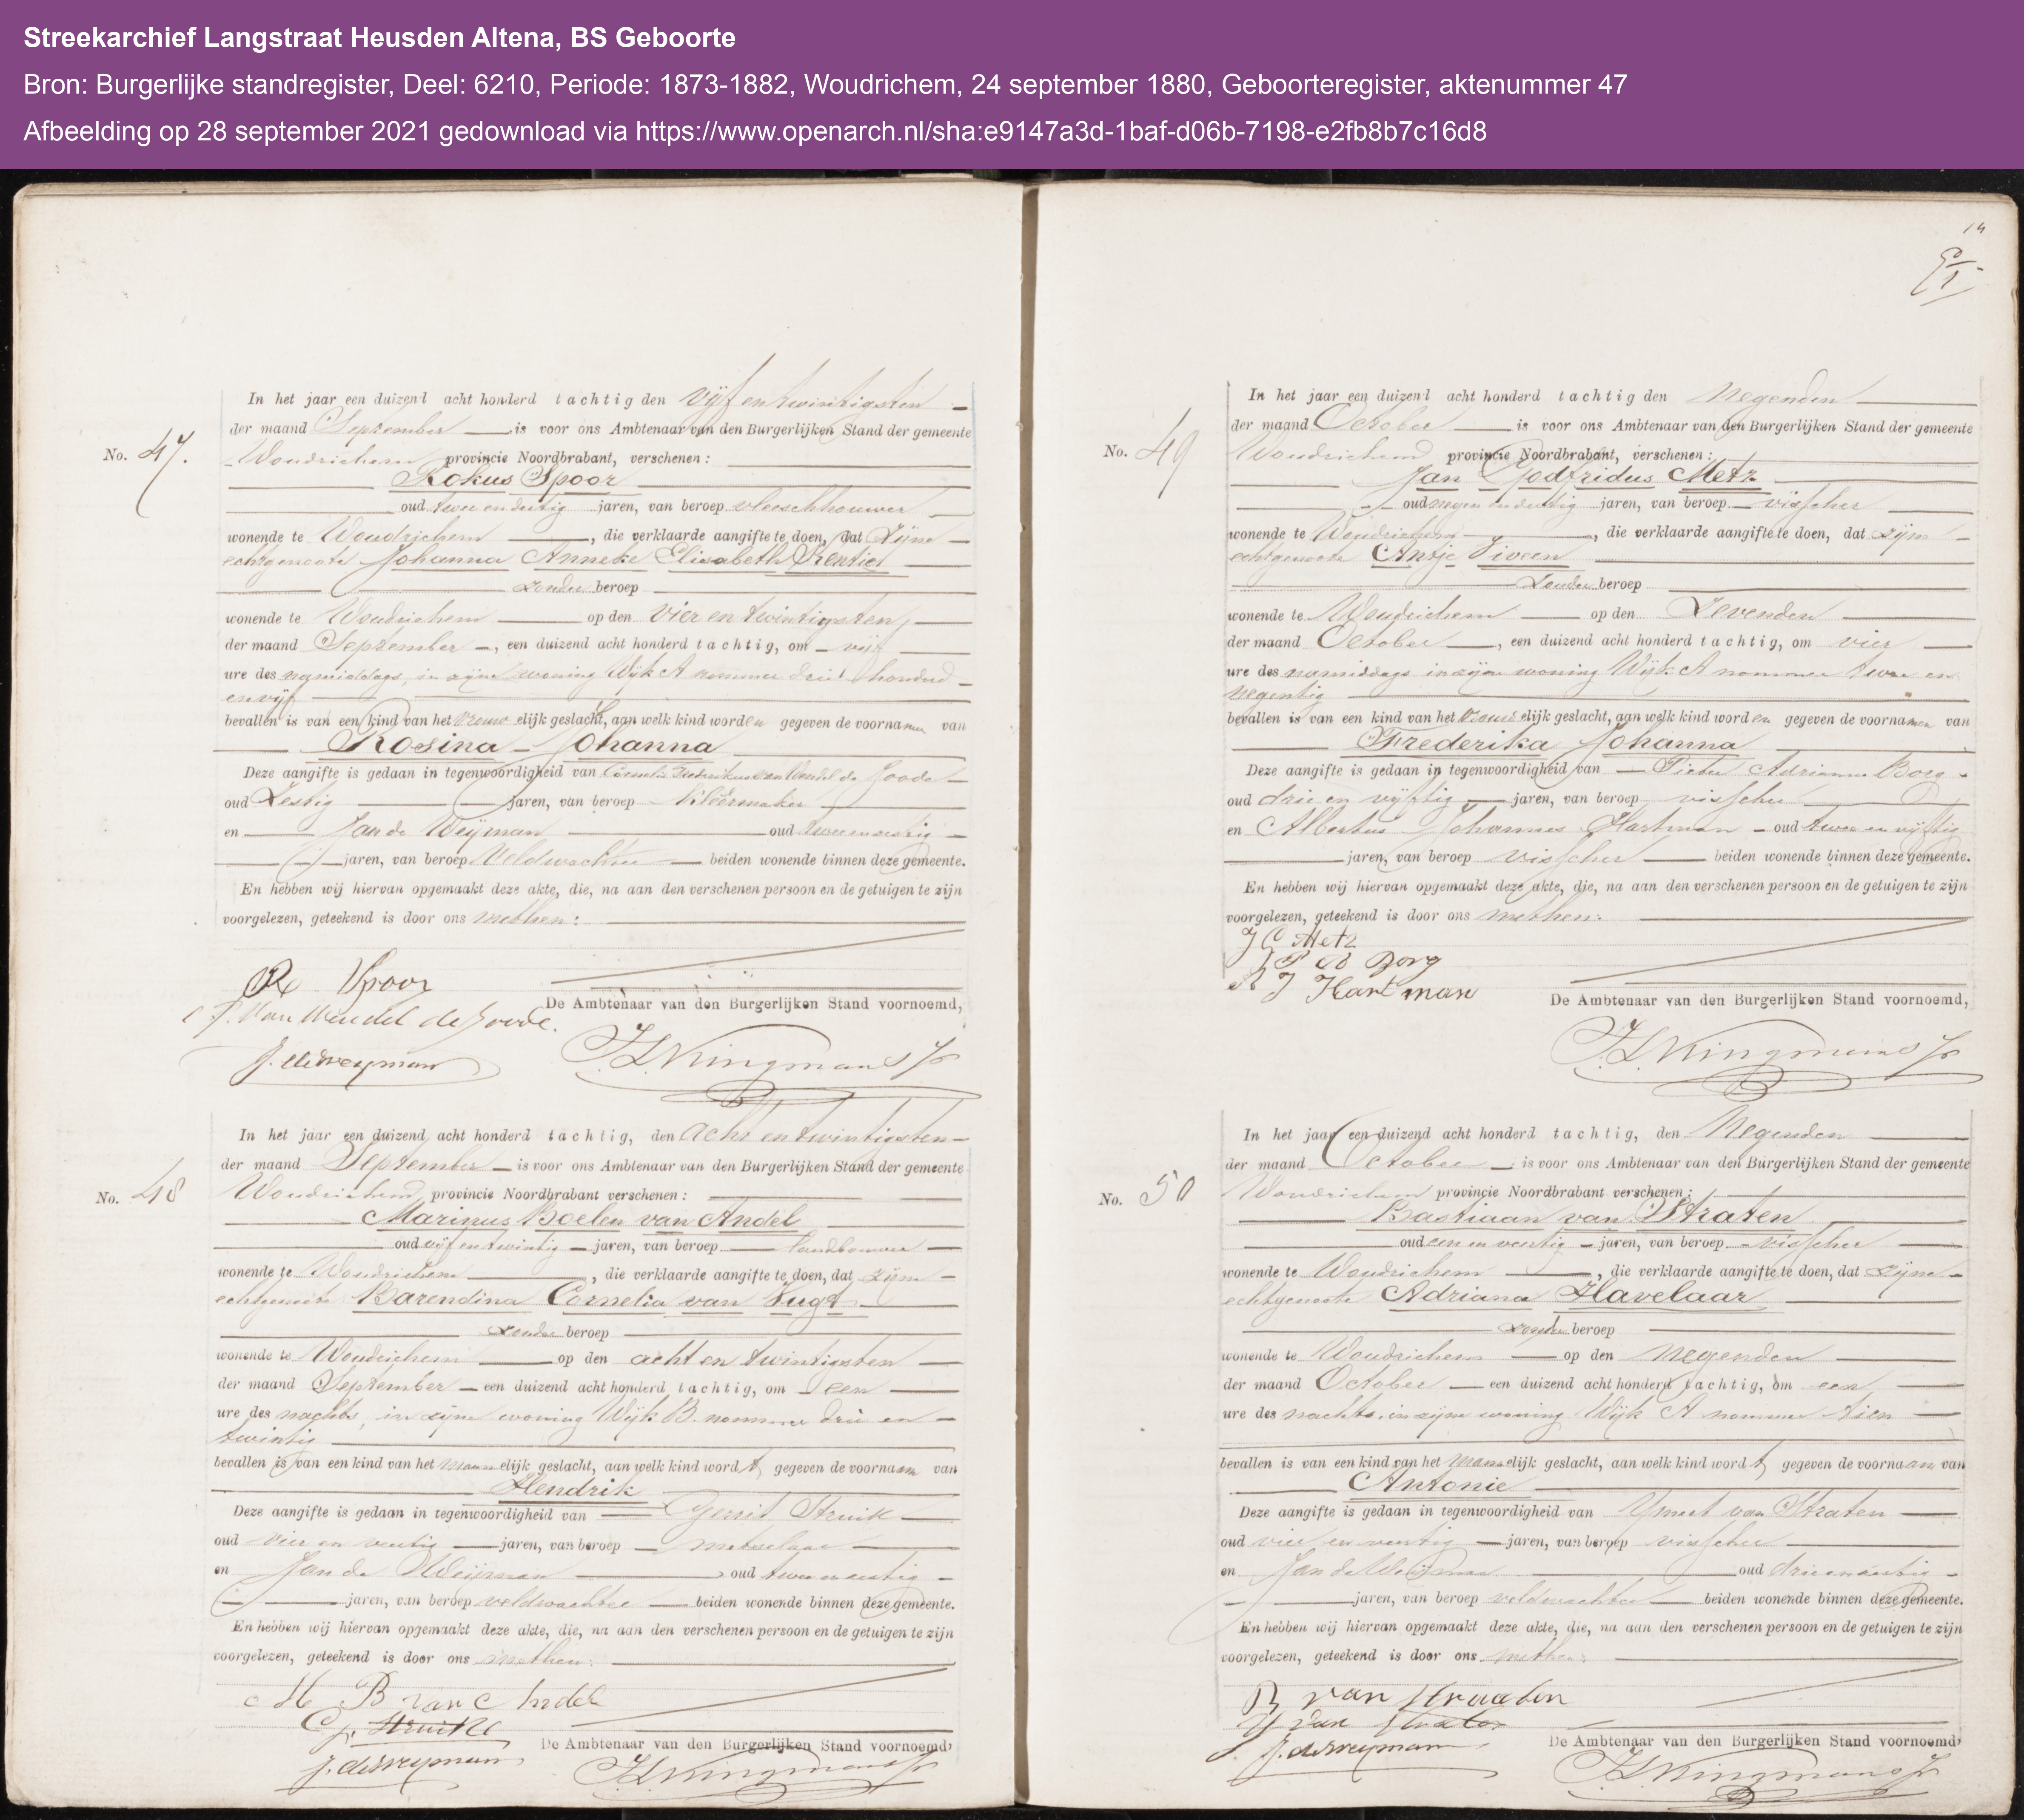 Streekarchief Langstraat Heusden Altena, BS Geboorte
Bron: Burgerlijke standregister, Deel: 6210, Periode: 1873-1882, Woudrichem, 24 september 1880, Geboorteregister, aktenummer 47
Afbeelding op 28 september 2021 gedownload via https://www.openarch.nl/sha:e9147a3d-1baf-d06b-7198-e2fb8b7c16d8
In het jaar een duizend acht honderd tachtig den vijf en twintigsten
der maand September is voor ons Ambtenaar van den Burgerlijken Stand der gemeente
No. 47. Woudrichem provincie Noordbrabant, verschenen:
Rokus Spoor
oud twee en dertig jaren, van beroep vleeschhouwer
wonende te Woudrichem, die verklaarde aangifte te doen, dat zijne
echtgenoote Johanna Anneke Elisabeth Rentier
zonder beroep
wonende te Woudrichem op den vier en twintigsten
der maand September, een duizend acht honderd tachtig, om vijf
ure des namiddags, in zijne woning Wijk A nommer drie honderd
en vijf
bevallen is van een kind van het vrouwelijk geslacht, aan welk kind worden gegeven de voornamen van
Rosina Johanna
Deze aangifte is gedaan in tegenwoordigheid van Cornelis Frederikus van Wendel de Joode
oud zestig jaren, van beroep kleermaker
en Jan de Weijman oud twee en zestig
jaren, van beroep Veldwachter beiden wonende binnen deze gemeente.
En hebben wij hiervan opgemaakt deze akte, die, na aan den verschenen persoon en de getuigen te zijn
voorgelezen, geteekend is door ons met hen:
R Spoor
C F. van Wendel de Joode.
De Ambtenaar van den Burgerlijken Stand voornoemd,
J. de Weyman
In het jaar een duizend acht honderd tachtig, den acht en twintigsten
der maand September is voor ons Ambtenaar van den Burgerlijken Stand der gemeente
No. 48 Woudrichem provincie Noordbrabant verschenen:
Marinus Boelen van Andel
oud vijf en twintig jaren, van beroep landbouwer
wonende te Woudrichem, die verklaarde aangifte te doen, dat zijne
echtgenoote Barendina Cornelia van Vugt
zonder beroep
wonende te Woudrichem op den acht en twintigsten
der maand September een duizend acht honderd tachtig, om een
ure des nachts, in zijne woning Wijk B. nommer drie en
twintig
bevallen is van een kind van het mannelijk geslacht, aan welk kind wordt gegeven de voornaam van
Hendrik
Deze aangifte is gedaan in tegenwoordigheid van Gerrit Struik
oud vier en veertig jaren, van beroep metselaar
en Jan de Weijman, oud twee en zestig
jaren, van beroep veldwachter beiden wonende binnen deze gemeente.
En hebben wij hiervan opgemaakt deze akte, die, na aan den verschenen persoon en de getuigen te zijn
voorgelezen, geteekend is door ons met hen:
M B van Andel
G. Struik
De Ambtenaar van den Burgerlijken Stand voornoemd,
J. de Weyman
14
In het jaar een duizend acht honderd tachtig den Negenden
der maand October is voor ons Ambtenaar van den Burgerlijken Stand der gemeente
No. 49 Woudrichem provincie Noordbrabant, verschenen:
Jan Godfridus Metz
oud negen en dertig jaren, van beroep visscher
wonende te Woudrichem, die verklaarde aangifte te doen, dat zijne
echtgenoote Antje Viveen
zonder beroep
wonende te Woudrichem op den Zevenden
der maand October, een duizend acht honderd tachtig, om vier
ure des namiddags in zijne woning Wijk A nommer twee en
negentig
bevallen is van een kind van het vrouwelijk geslacht, aan welk kind worden gegeven de voornamen van
Frederika Johanna
Deze aangifte is gedaan in tegenwoordigheid van Pieter Adrianus Borg
oud drie en vijftig jaren, van beroep visscher
en Albertus Johannes Hartman oud twee en vijftig
jaren, van beroep visscher beiden wonende binnen deze gemeente.
En hebben wij hiervan opgemaakt deze akte, die, na aan den verschenen persoon en de getuigen te zijn
voorgelezen, geteekend is door ons met hen:
J G Metz
Borg
A J Hartman
De Ambtenaar van den Burgerlijken Stand voornoemd,
In het jaar een duizend acht honderd tachtig, den Negenden
der maand October is voor ons Ambtenaar van den Burgerlijken Stand der gemeente
No. 50 Woudrichem provincie Noordbrabant verschenen:
Bastiaan van Straten
oud een en veertig jaren, van beroep visscher
wonende te Woudrichem, die verklaarde aangifte te doen, dat zijne
echtgenoote Adriana Havelaar
zonder beroep
wonende te Woudrichem op den Negenden
der maand October een duizend acht honderd tachtig, om een
ure des nachts, in zijne woning Wijk A nommer tien
bevallen is van een kind van het mannelijk geslacht, aan welk kind wordt gegeven de voornaam van
Antonie
Deze aangifte is gedaan in tegenwoordigheid van van Straten
oud vier en veertig jaren, van beroep visscher
en Jan de Weijman oud drie en zestig
jaren, van beroep veldwachter beiden wonende binnen deze gemeente.
En hebben wij hiervan opgemaakt deze akte, die, na aan den verschenen persoon en de getuigen te zijn
voorgelezen, geteekend is door ons met hen:
B van Straaten
Y van Straten
J. de Weyman
De Ambtenaar van den Burgerlijken Stand voornoemd,